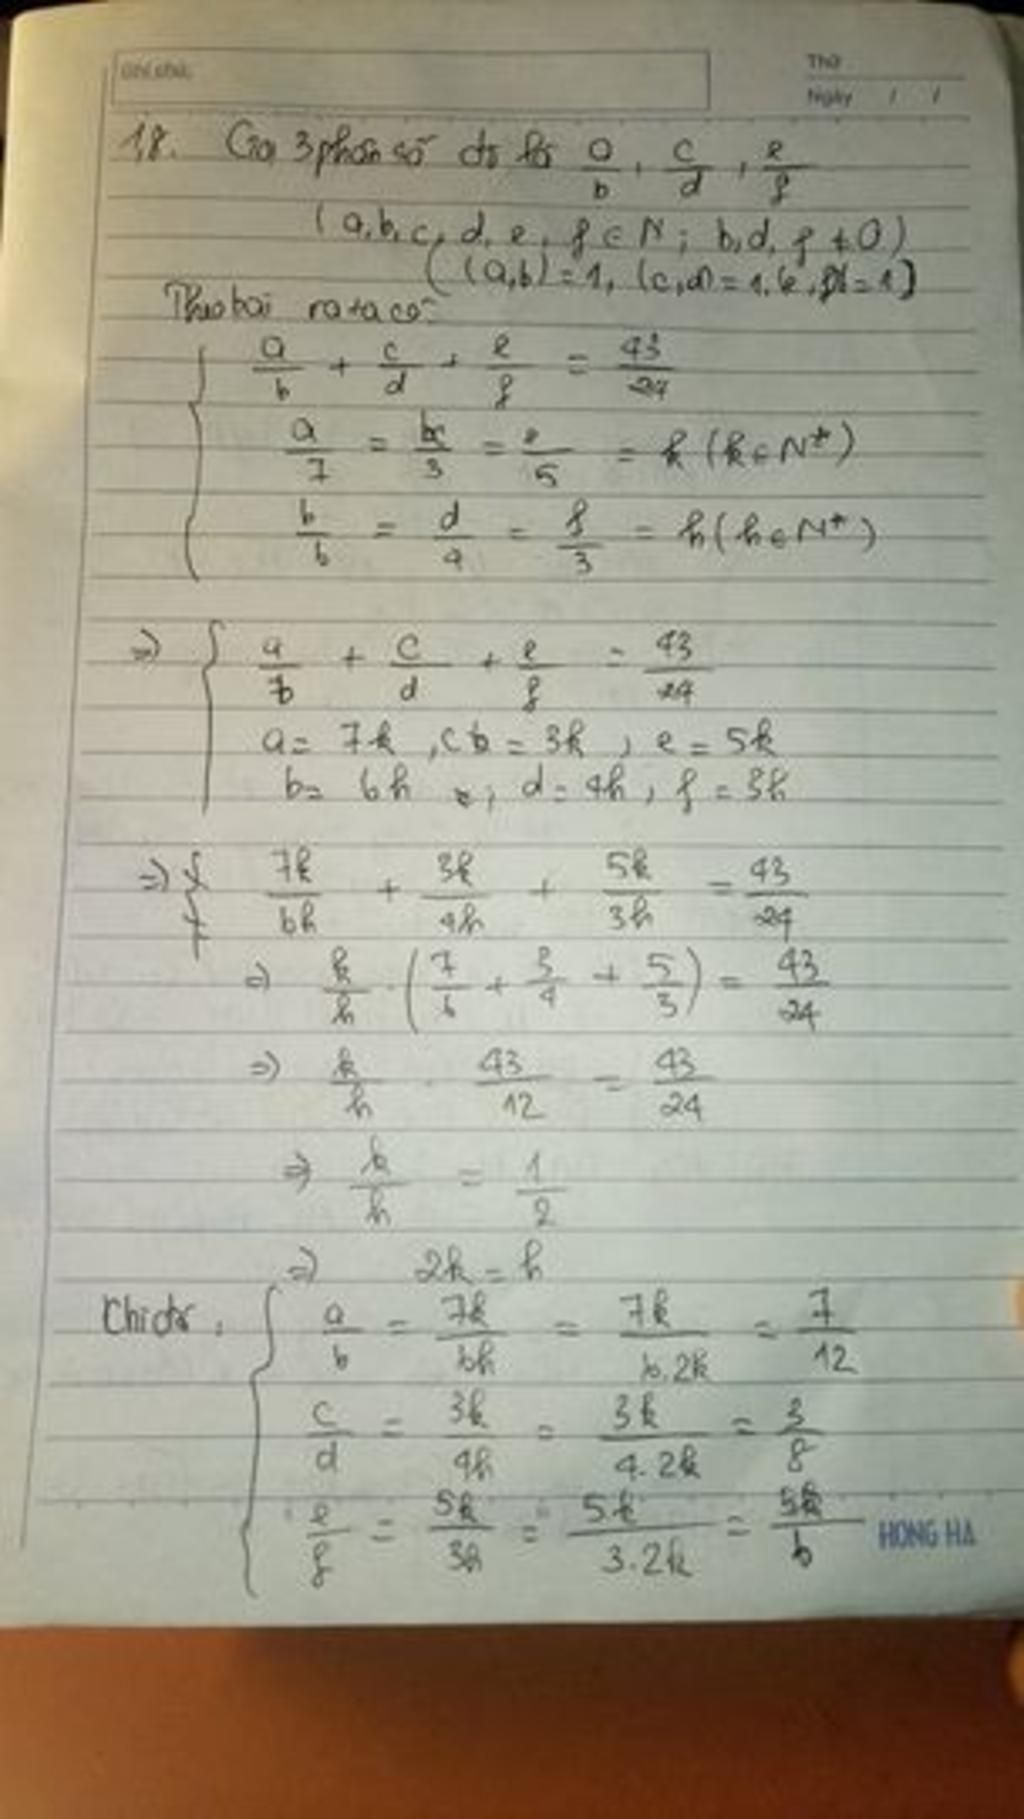 Ghi chú:
Thứ
Ngày / /
1,8. Gọi 3 phân số đó là a/b, c/d, e/f
(a,b,c,d,e,f ∈ N; b,d,f ≠ 0)
((a,b)=1, (c,d)=1, (e,f)=1)
Theo bài ra ta có:
a/b + c/d + e/f = 43/24
a/7 = c/3 = e/5 = k (k ∈ N*)
b/6 = d/4 = f/3 = h (h ∈ N*)
=> a/b + c/d + e/f = 43/24
a = 7k, c = 3k, e = 5k
b = 6h; d = 4h, f = 3h
=> 7k/6h + 3k/4h + 5k/3h = 43/24
=> k/h . (7/6 + 3/4 + 5/3) = 43/24
=> k/h . 43/12 = 43/24
=> k/h = 1/2
=> 2k = h
a/b = 7k/6h = 7k/6.2k = 7/12
c/d = 3k/4h = 3k/4.2k = 3/8
e/f = 5k/3h = 5k/3.2k = 5k/6
HONG HA